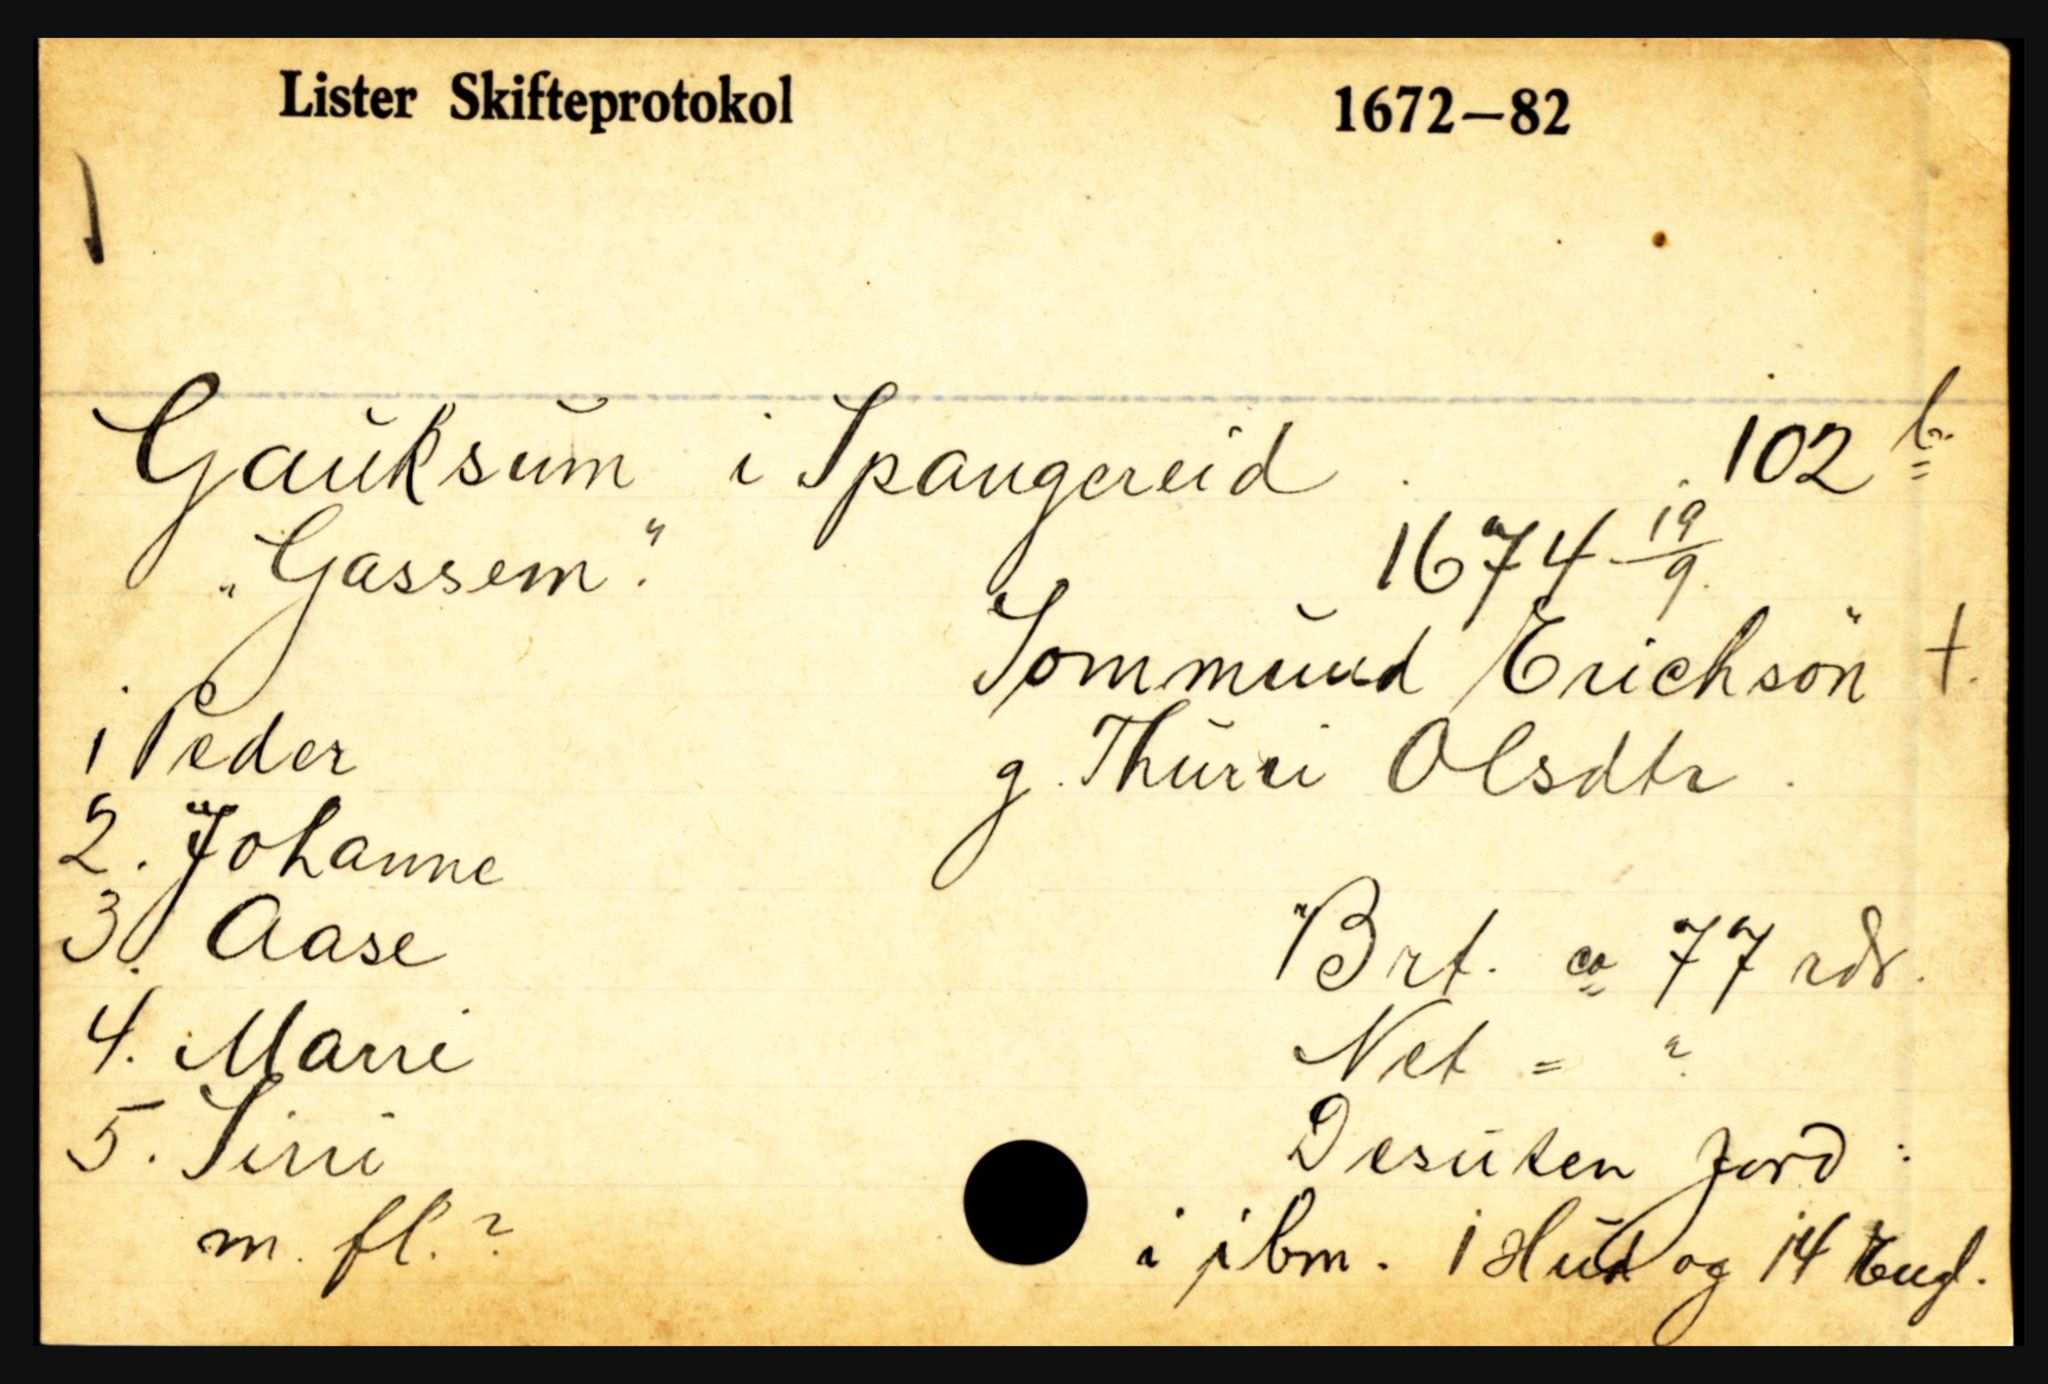 Lister Skifteprotokol 1672–82
Gauksum i Spangereid 102 b.
„Gassem“. 1674 19/9.
Tommund Erichsön †.
1 Peder
g. Thurri Olsdtr.
2. Johanne
3. Aase
Brt. ca 77 rdr.
4. Marri
Net = "
5. Sirri
Desuten Jord:
m. fl.?
i ibm. 1 Hud og 14 Engl.